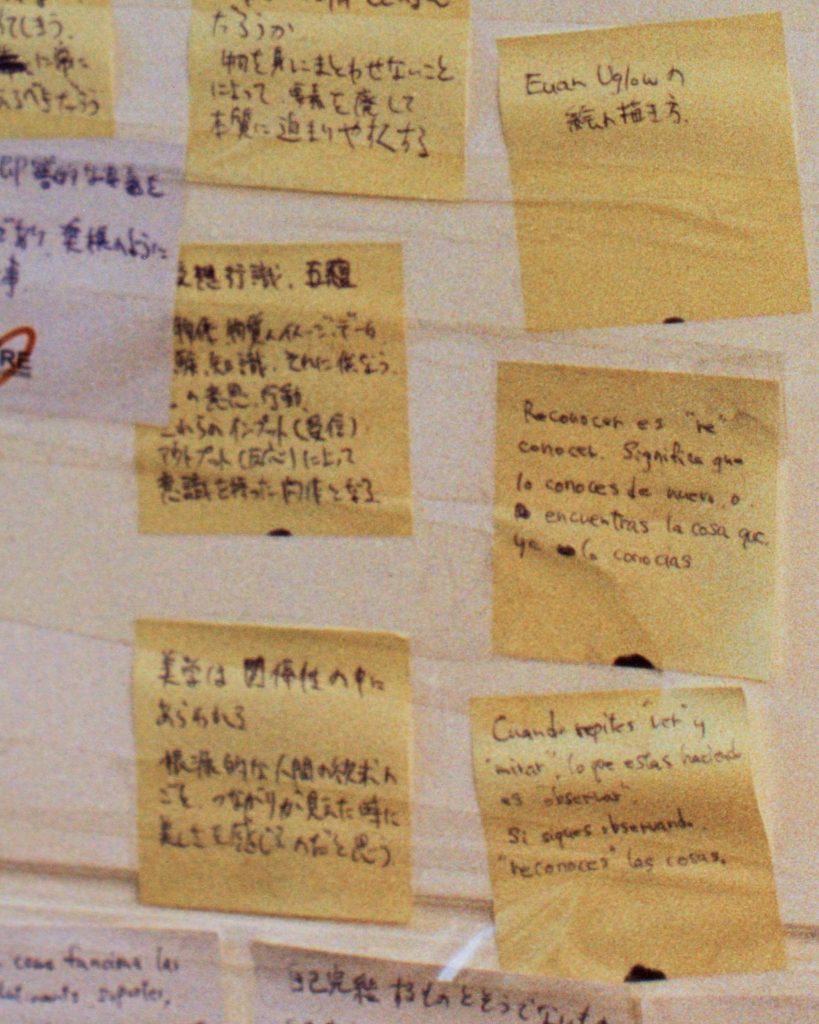 てしまう.
に常に
あるべきだろう
だろうか
物を身にまとわせないこと
によって、要素を廃して
本質に迫りやすくする
Euan Uglowの
絵の描き方.
的な
のように
事.
RE
想行識、五蘊
物体 物質のイメージ、データ
知識、それに伴なう
の意思、行動、
これらのインプット(受信)
アウトプット(反応)によって
意識を持った肉体となる
Reconocer es "re"
conocer. Significa que
lo conoces de nuevo, o
encuentras la cosa que
ya lo conocias
美学は 関係性の中に
あらわれる
根源的な人間の欲求の
ごと、つながりが見えた時に
美しさを感じるのだと思う
Cuando repites "ver" y
"mirar", lo que estas haciendo
es "observar".
Si sigues observando,
"reconoces" las cosas.
como funciona las
自己完結するものとそうでないもの